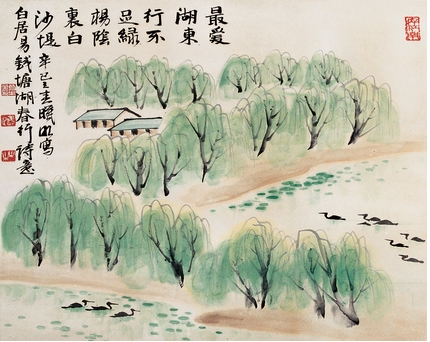 最爱
湖東
行不
足綠
楊陰
裏白
沙堤 辛巳春曉明寫
白居易錢塘湖春行詩意